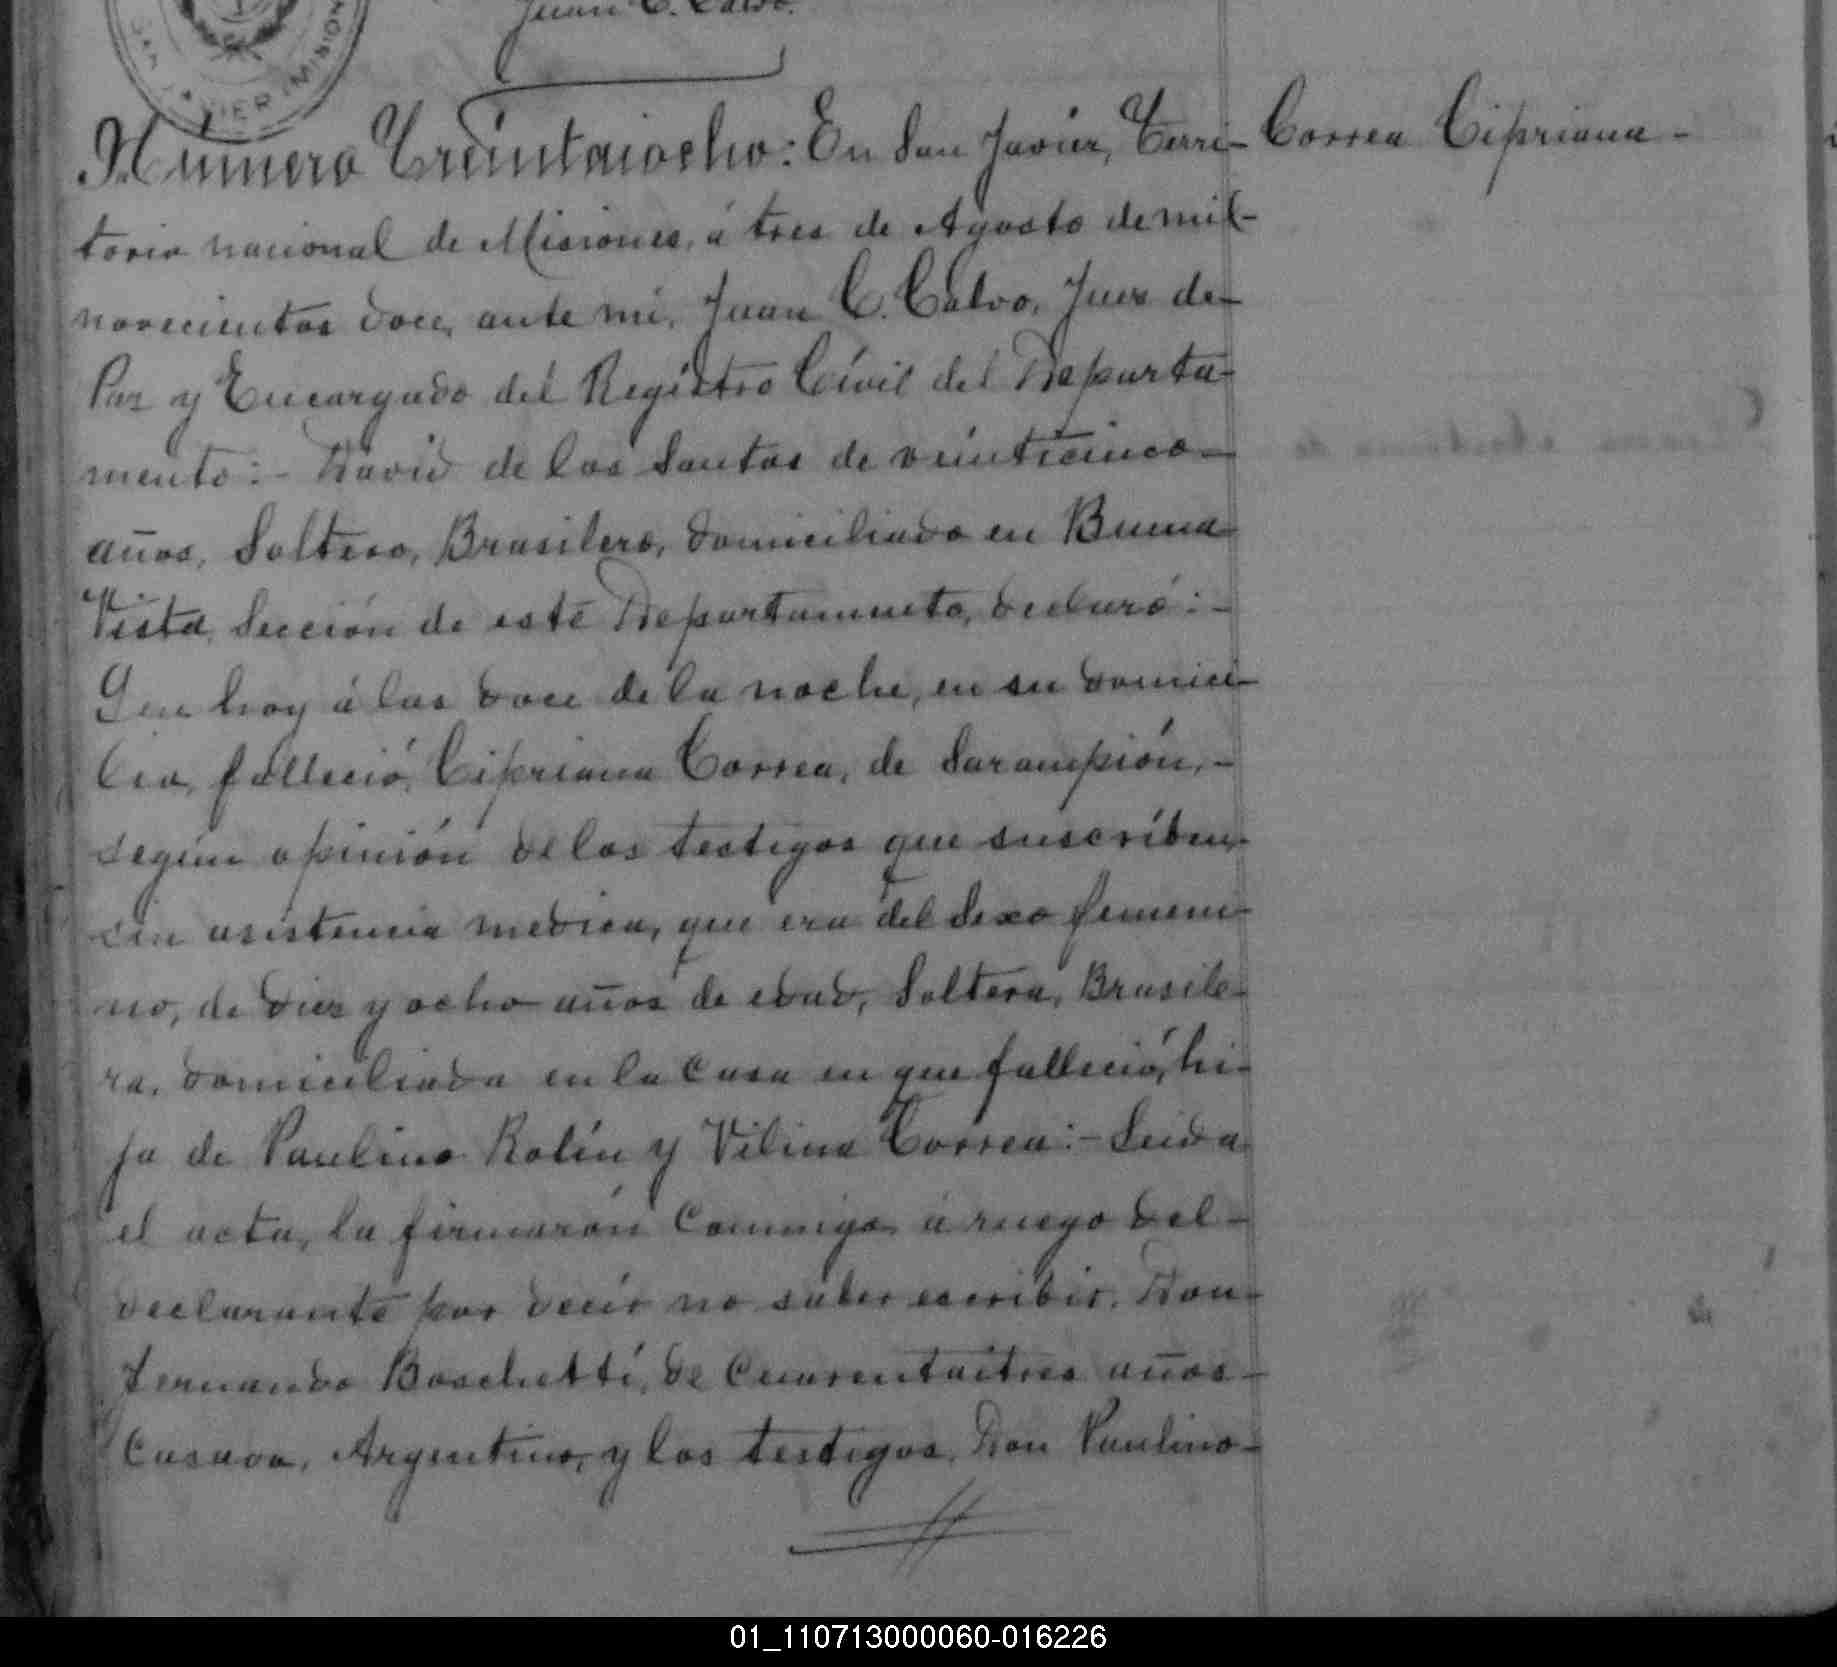 Juan C. Calvo.
SAN JAVIER (MISIONES
Número Treintaiocho: En San Javier, Terri-
Correa Cipriana-
torio nacional de Misiones, á tres de Agosto de mil-
novecientos doce, ante mi, Juan C. Calvo, Juez de-
Paz y Encargado del Registro Civil del Departa-
mento:- David de los Santos de veinticinco-
años, Soltero, Brasilero, domiciliado en Buena
Vista, Sección de este Departamneto, declaró:-
Que hoy á las doce de la noche, en su domici-
lio, falleció, Cipriana Correa, de Sarampión,-
según opinión de los testigos que suscriben,-
sin asistencia medica, que era del Sexo femeni-
no, de diez y ocho años de edad, Soltera, Brasile-
ra, domiciliada en la Casa en que falleció, hi-
ja de Paulino Rolín y Vilina Correa:- Leida
el acta, la firmarón Conmigo á ruego del-
declarante por decir no saber escribir, Don-
Fernando Boschetti, de Cuarentaitres años-
Casado, Argentino, y los testigos, Don Paulino-
01_110713000060-016226